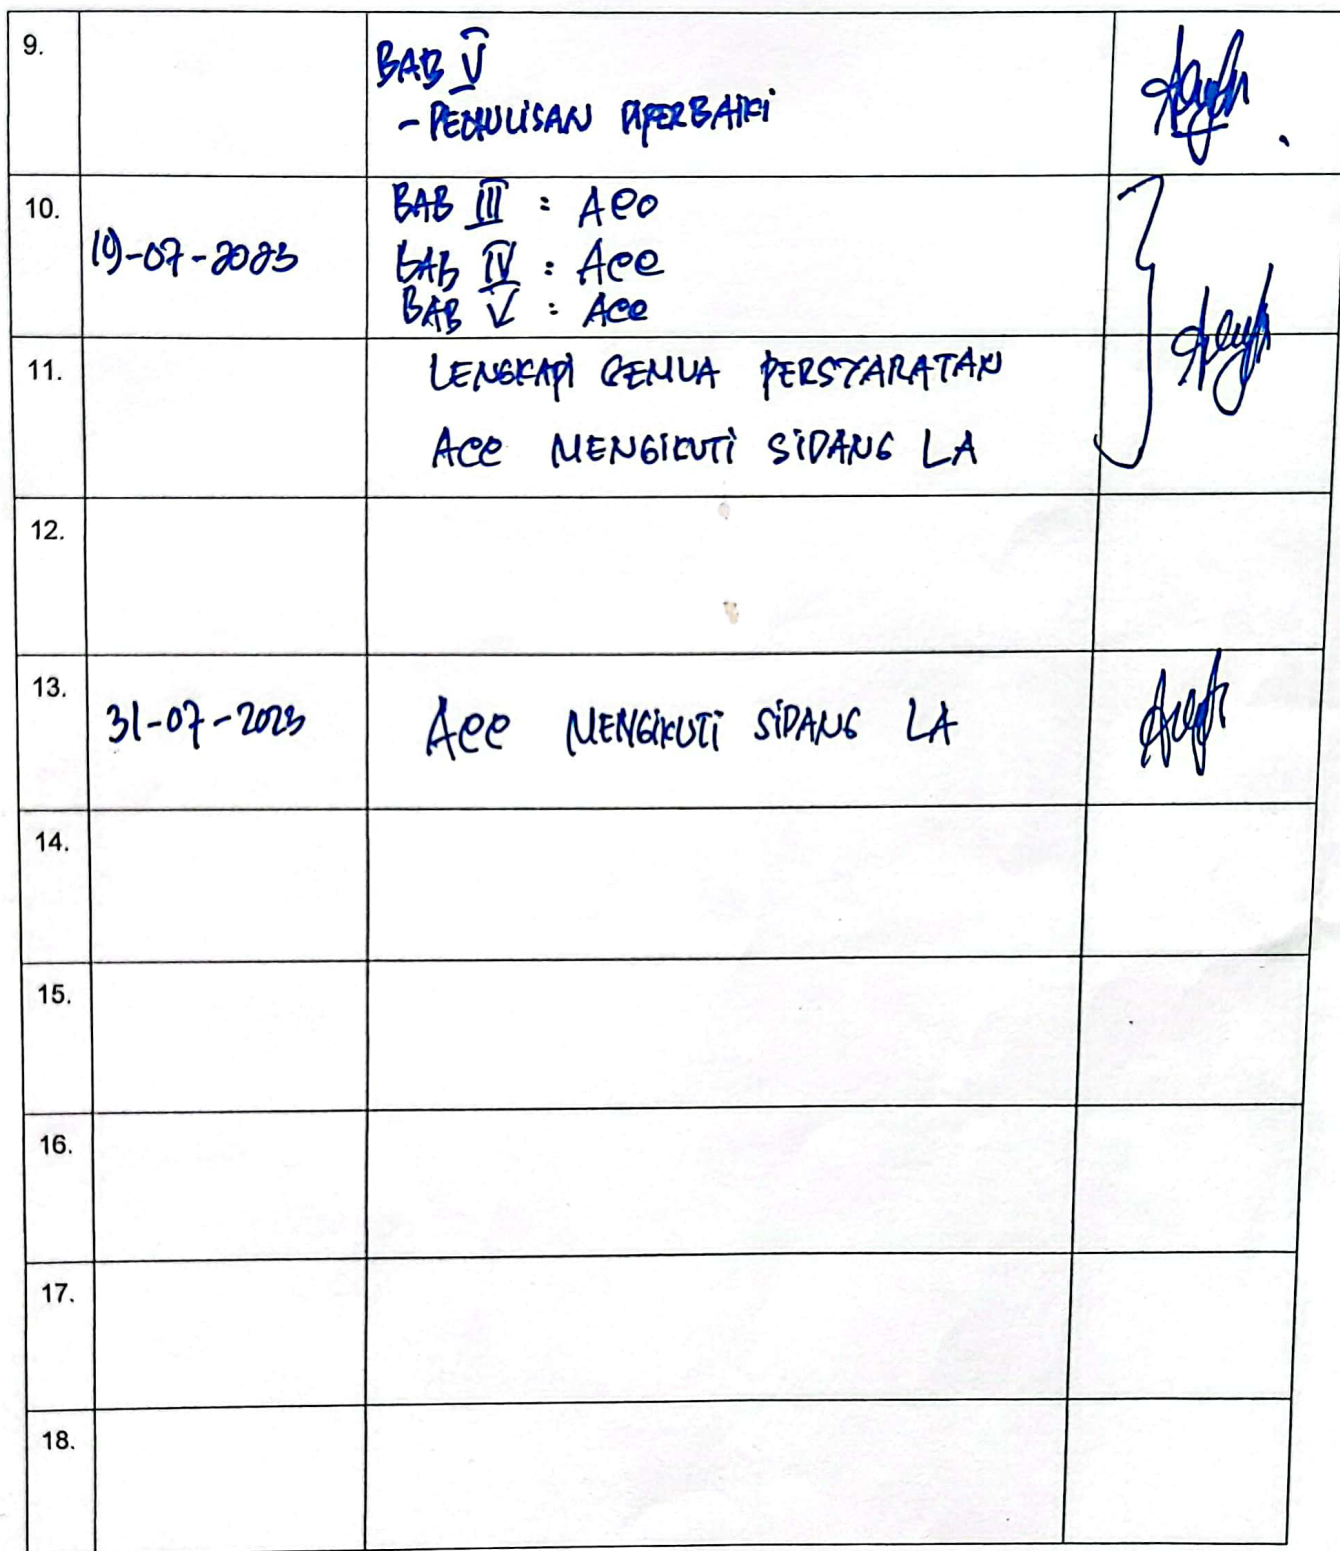 9.
BAB V
- PENULISAN DIPERBAIKI
10.
19-07-2023
BAB III : Acc
BAB IV : Acc
BAB V : Acc
11.
LENGKAPI SEMUA PERSYARATAN
Acc MENGIKUTI SIDANG LA
12.
13.
31-07-2023
Acc MENGIKUTI SIDANG LA
14.
15.
16.
17.
18.